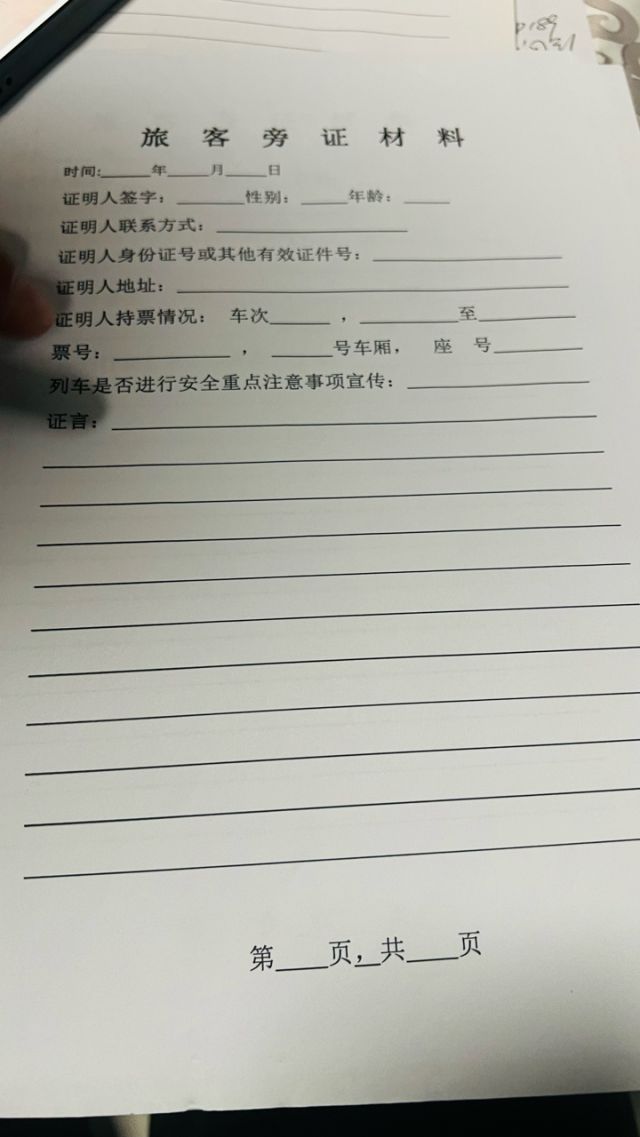 旅客旁证材料
时间:_____年_____月_____日
证明人签字：_______性别：_____年龄：_____
证明人联系方式：____________________
证明人身份证号或其他有效证件号：____________________
证明人地址：________________________________________
证明人持票情况： 车次______ ，__________至__________
票号：____________ ， ______号车厢， 座 号_________
列车是否进行安全重点注意事项宣传：___________________
证言：__________________________________________________
第____页,__共____页